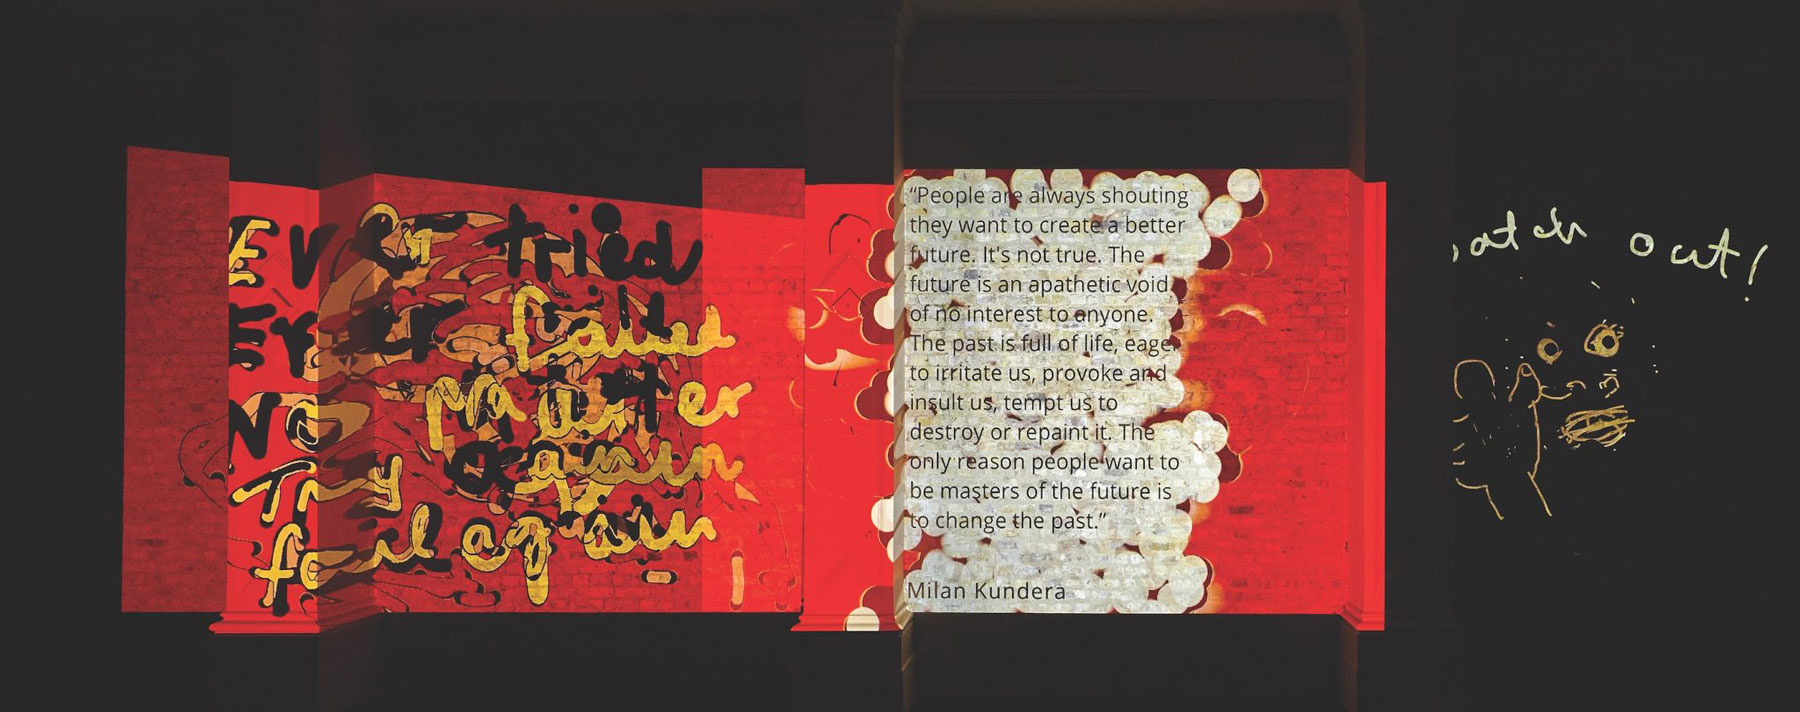 Ever tried
Ever failed
No matter
Try again
fail again
“People are always shouting
they want to create a better
future. It's not true. The
future is an apathetic void
of no interest to anyone.
The past is full of life, eager
to irritate us, provoke and
insult us, tempt us to
destroy or repaint it. The
only reason people want to
be masters of the future is
to change the past.”
Milan Kundera
watch out!